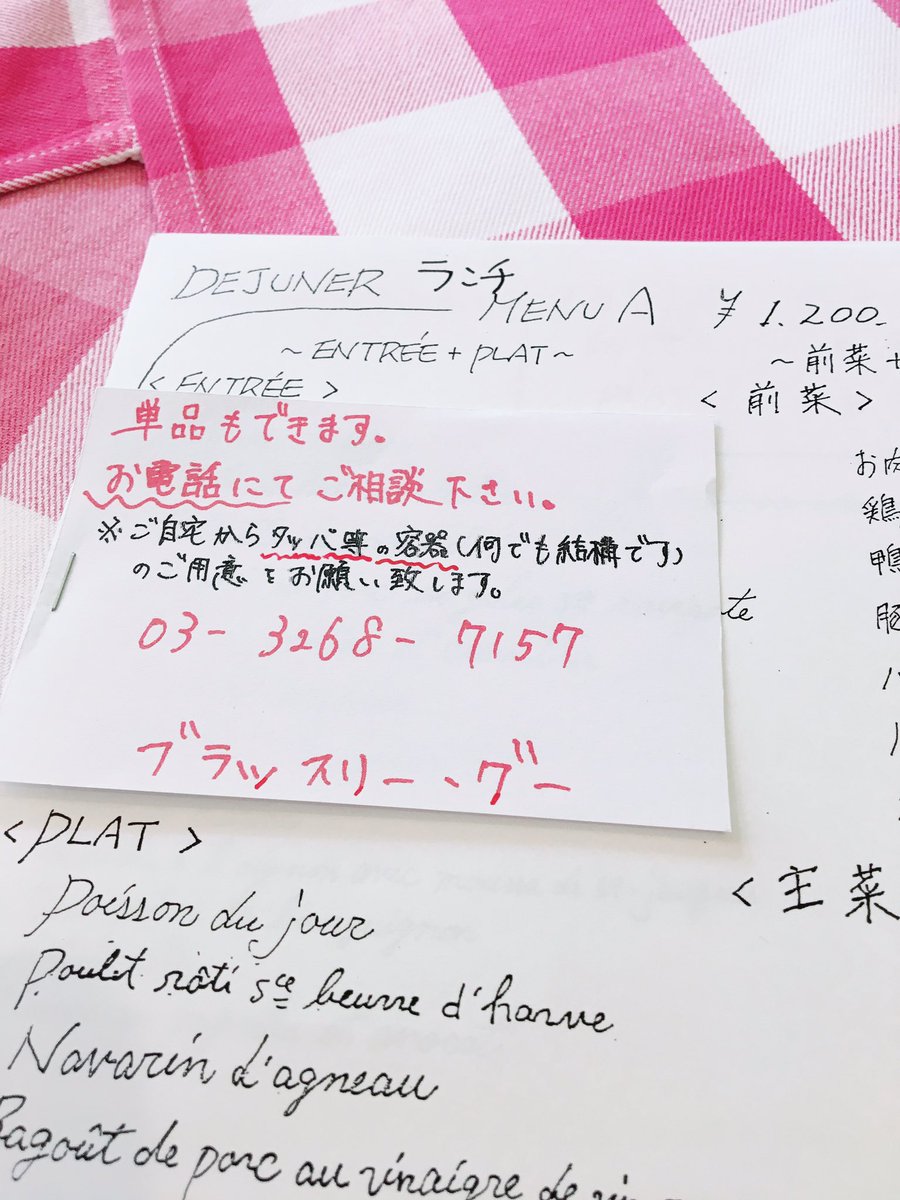 DEJUNER ランチ
MENU A ¥1.200.
~ENTRÉE+PLAT~ ~前菜+
<ENTRÉE> <前菜>
単品もできます。
お電話にてご相談下さい。
※ご自宅からタッパ等の容器(何でも結構です)
のご用意をお願い致します。
03-3268-7157
ブラッスリー・グー
お肉
鶏
鴨
豚
te
<PLAT>
<主菜
Poisson du jour
Poulet rôti sce beurre d'harve
Navarin d'agneau
Ragoût de porc au vinaigre de